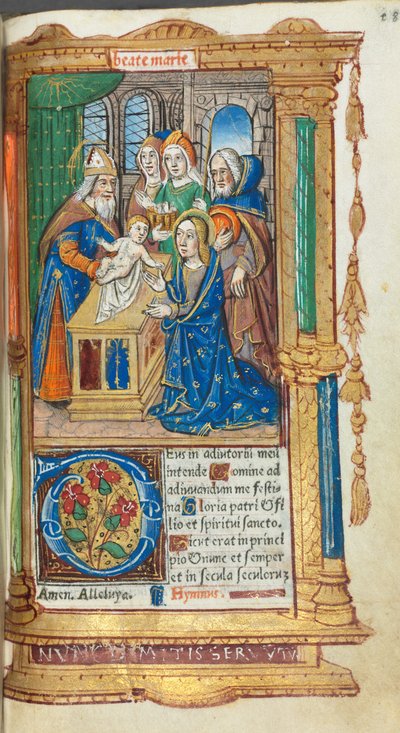 beate marie
Eus in adiutoriū meū
intende Domine ad
adiuvandum me festi
na Gloria patri & fi
lio et spiritui sancto.
Sicut erat in princi
pio & nunc et semper
et in secula seculorū
Amen. Alleluya. Hymnus.
NVNC DIMITIS SERVVTV